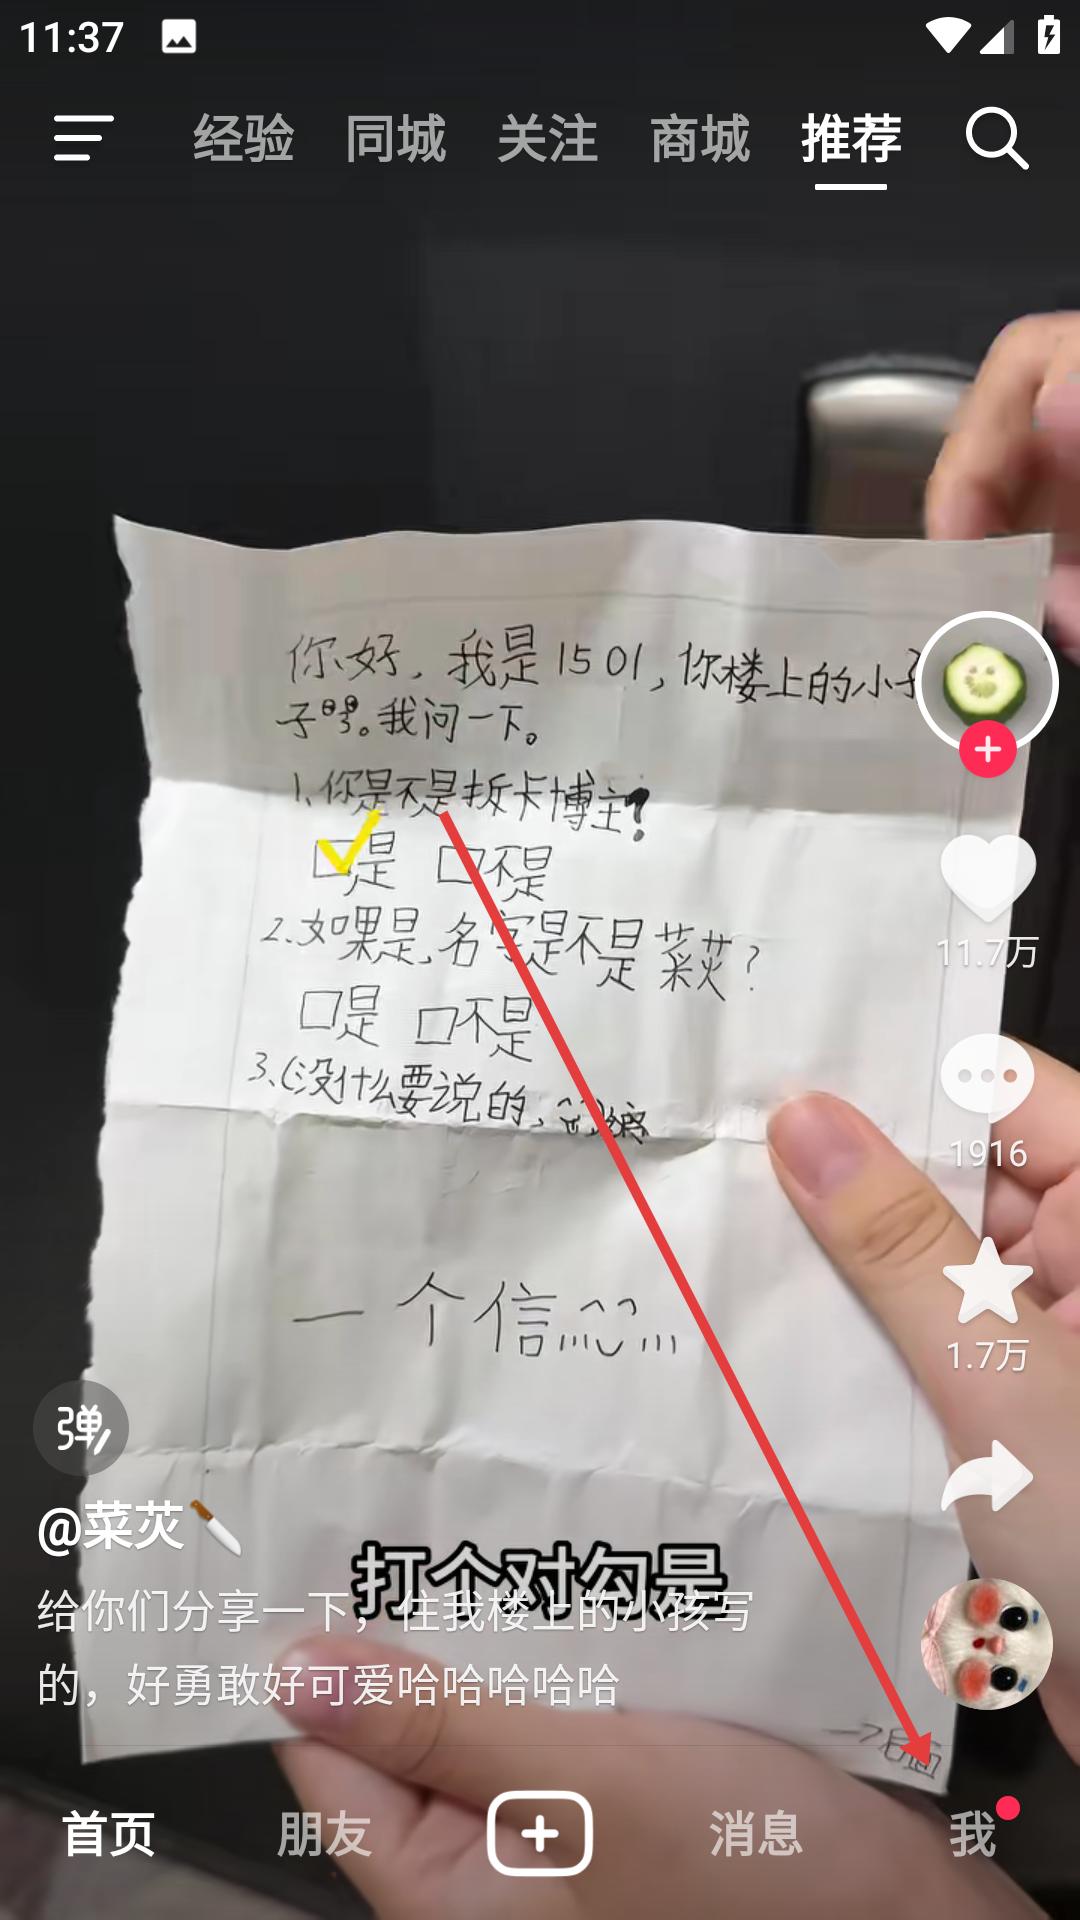 11:37
经验 同城 关注 商城 推荐
你好，我是1501，你楼上的小
子。我问一下。
1、你是不是拆卡博主？
口是 口不是
2.如果是，名字是不是菜芡？
口是 口不是
3、(没什么要说的，
一个信
11.7万
1916
1.7万
弹
@菜芡
打个对勾是
给你们分享一下，住我楼上的小孩写
的，好勇敢好可爱哈哈哈哈哈
首页 朋友 消息 我